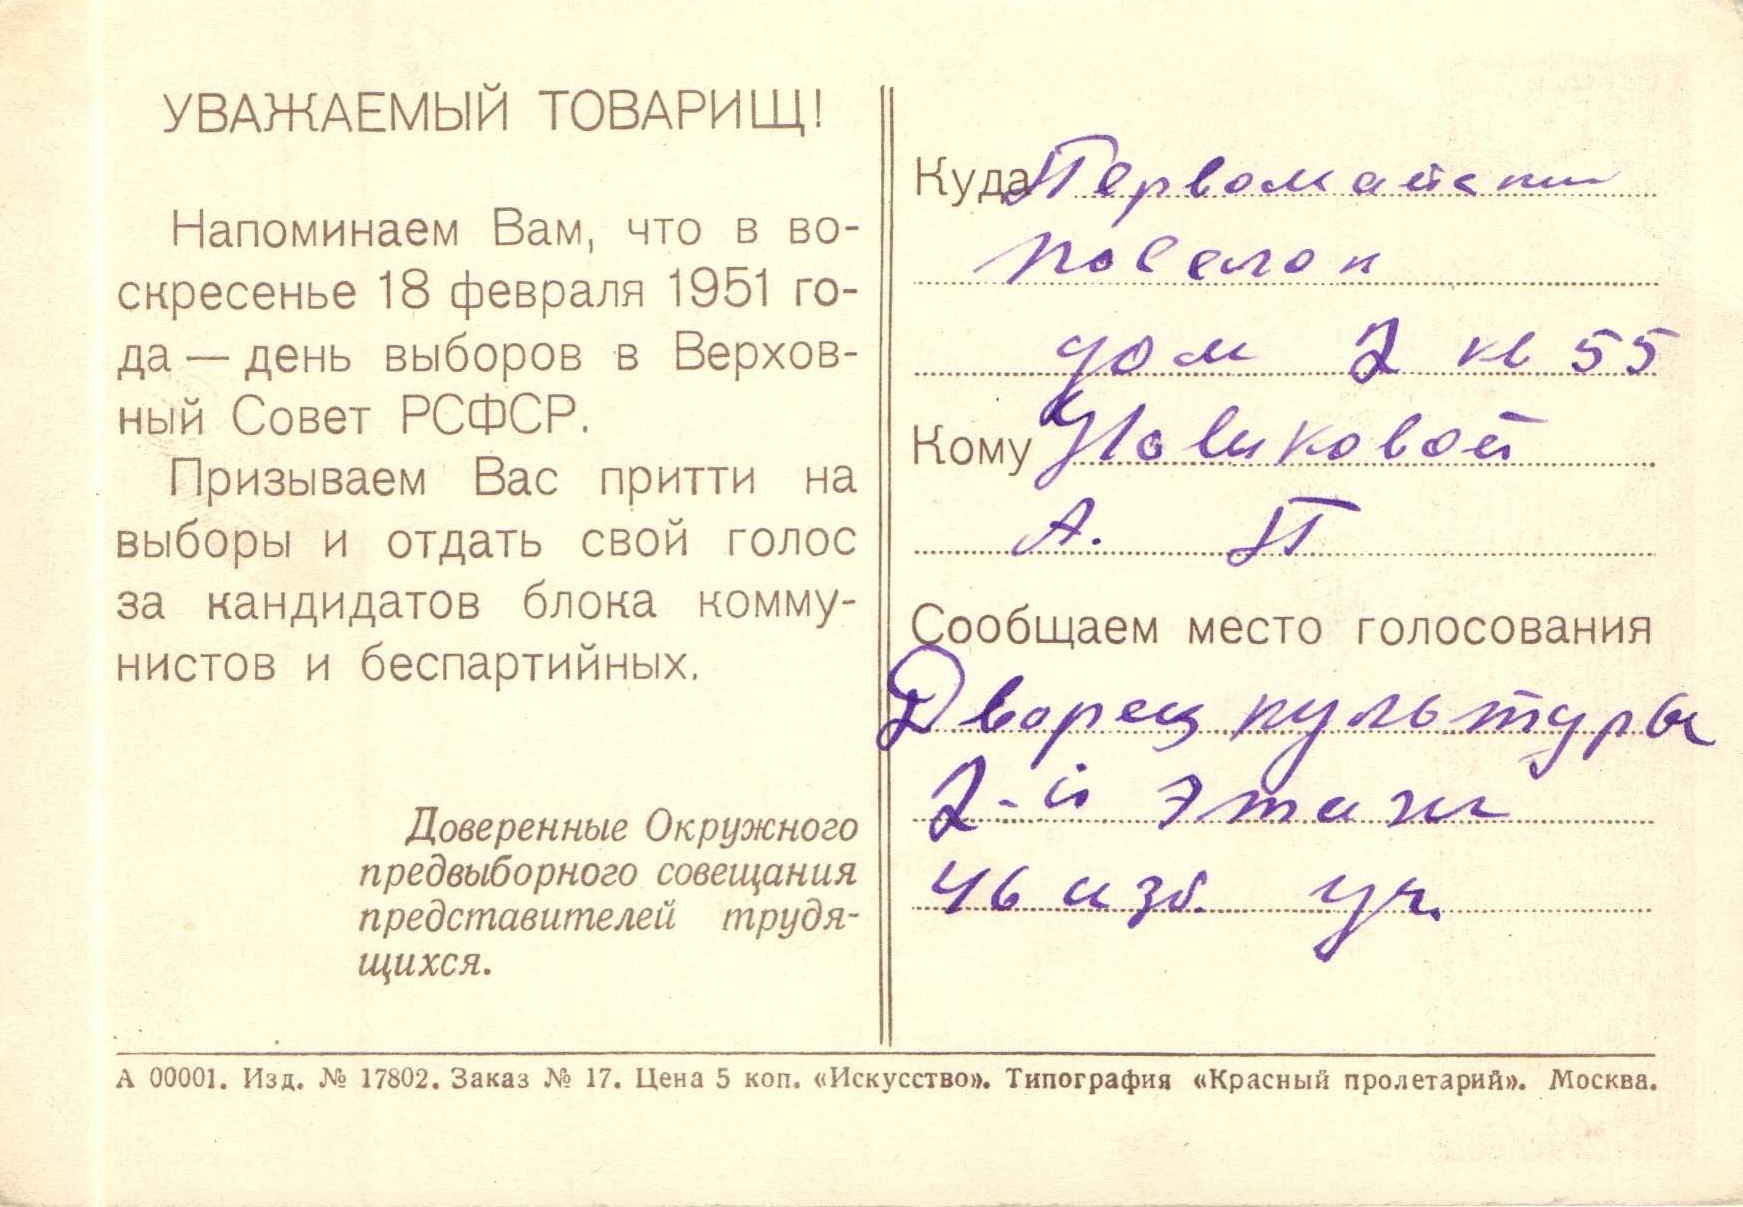 УВАЖАЕМЫЙ ТОВАРИЩ!
Напоминаем Вам, что в во-
скресенье 18 февраля 1951 го-
да — день выборов в Верхов-
ный Совет РСФСР.
Призываем Вас притти на
выборы и отдать свой голос
за кандидатов блока комму-
нистов и беспартийных.
Доверенные Окружного
предвыборного совещания
представителей трудя-
щихся.
Куда Первомайский
поселок
дом 2 кв 55
Кому Новиковой
А. П
Сообщаем место голосования
Дворец культуры
2-й этаж
46 изб. уч.
А 00001. Изд. № 17802. Заказ № 17. Цена 5 коп. «Искусство». Типография «Красный пролетарий». Москва.